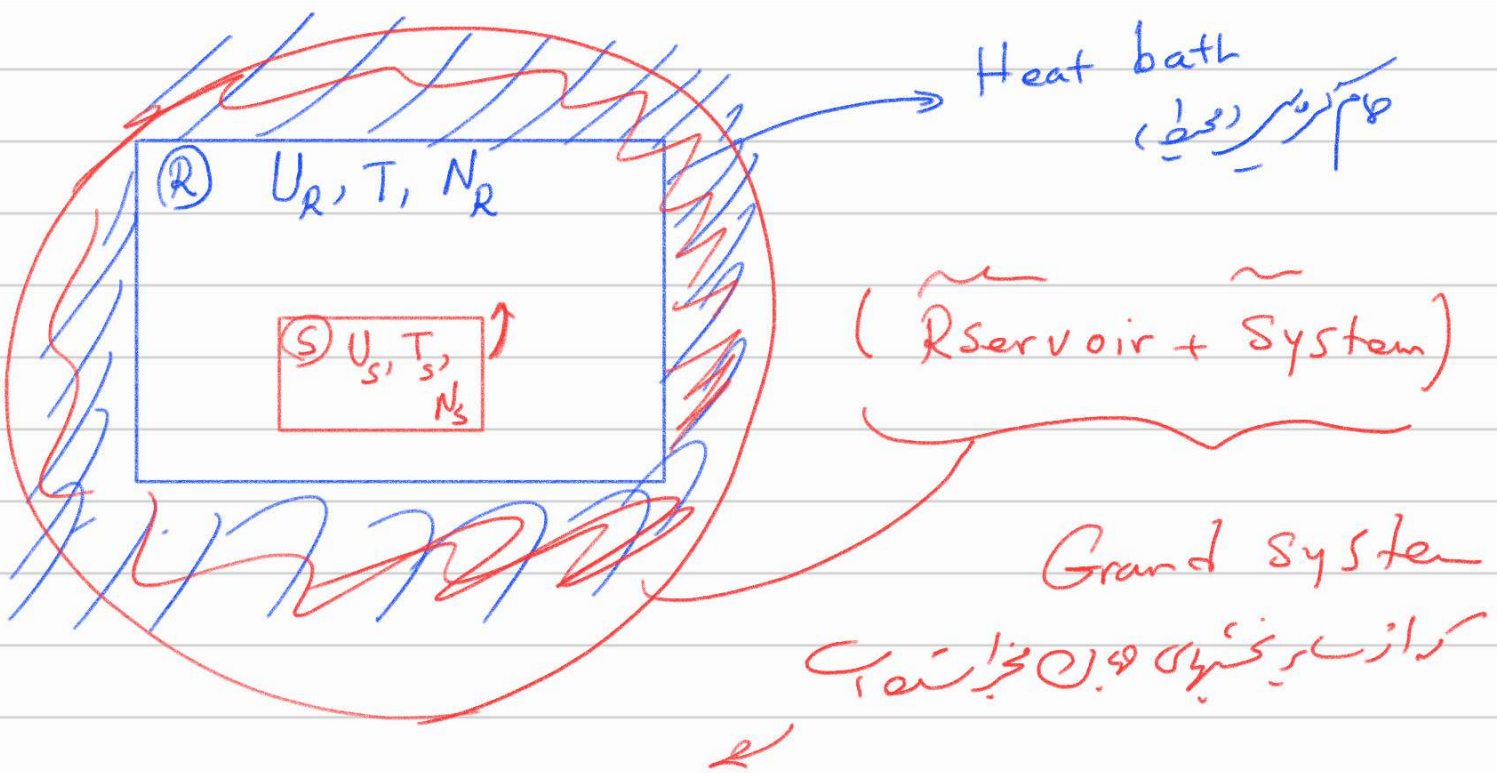 Heat bath
حمام گرمایی (محیط)
Ⓡ U_R, T, N_R
Ⓢ U_S, T_S,
N_S
( Rservoir + System )
Grand System
که از سایر بخشهای جهان مجزا شده است